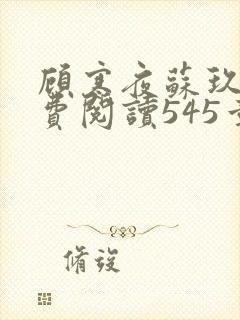 顧寒夜蘇玖
費閱讀545
脩後